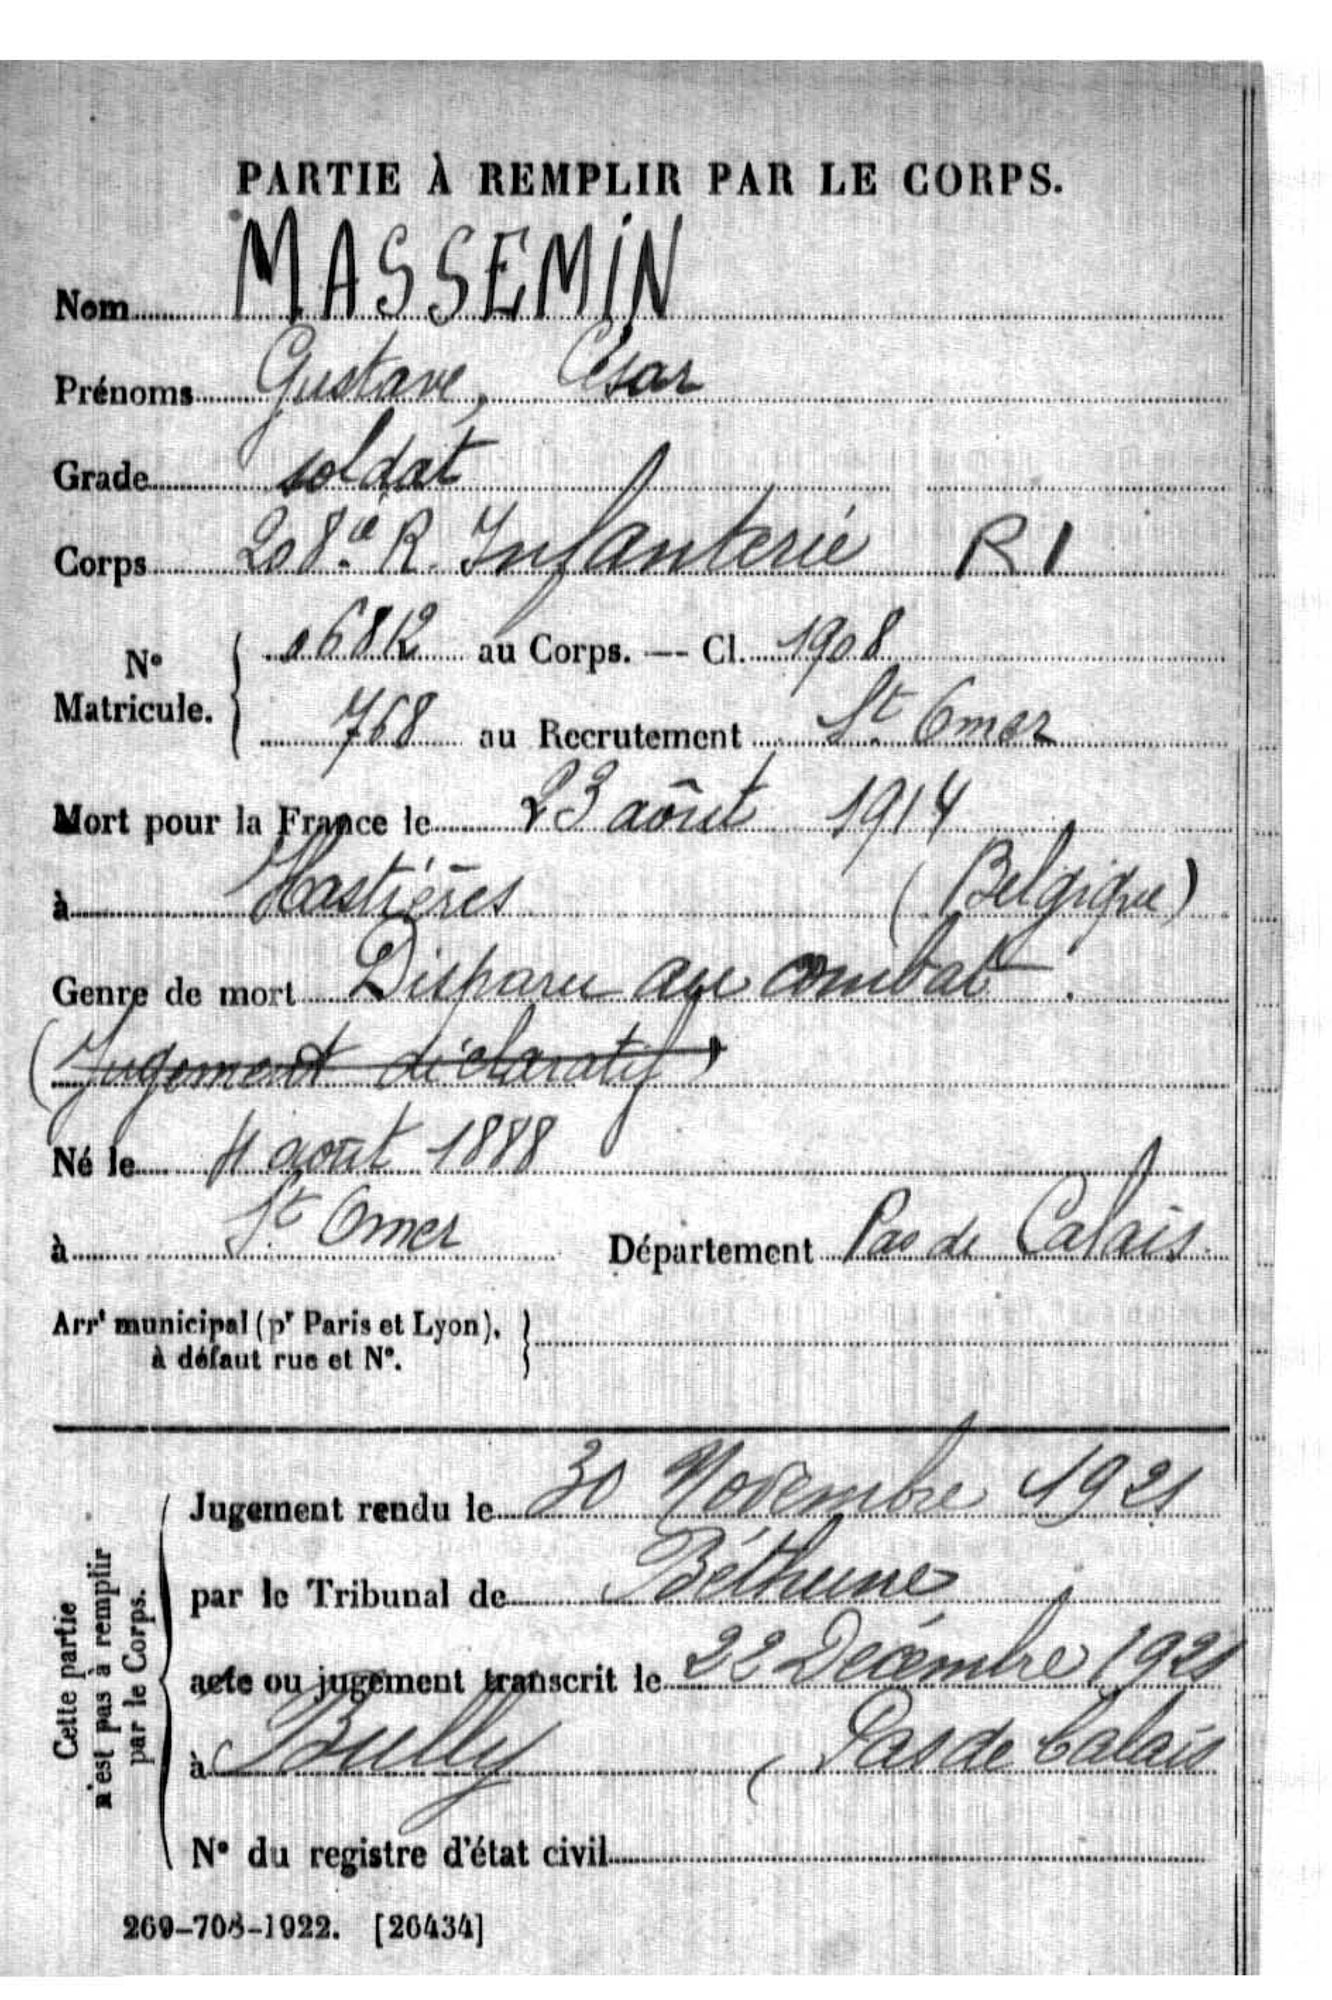 PARTIE À REMPLIR PAR LE CORPS.
Nom MASSEMIN
Prénoms Gustave, César
Grade soldat
Corps 208e R. Infanterie RI
N° Matricule. 06812 au Corps. — Cl. 1908
768 au Recrutement St Omer
Mort pour la France le 23 août 1914
à Hastières (Belgique)
Genre de mort Disparu au combat.
(Jugement déclaratif)
Né le 4 août 1888
à St Omer Département Pas de Calais
Arrt municipal (pr Paris et Lyon),
à défaut rue et N°.
Cette partie
n'est pas à remplir
par le Corps.
Jugement rendu le 30 Novembre 1921
par le Tribunal de Béthune
acte ou jugement transcrit le 22 Décembre 1921
à Bully (Pas de Calais
N° du registre d'état civil
269-708-1922. [26434]